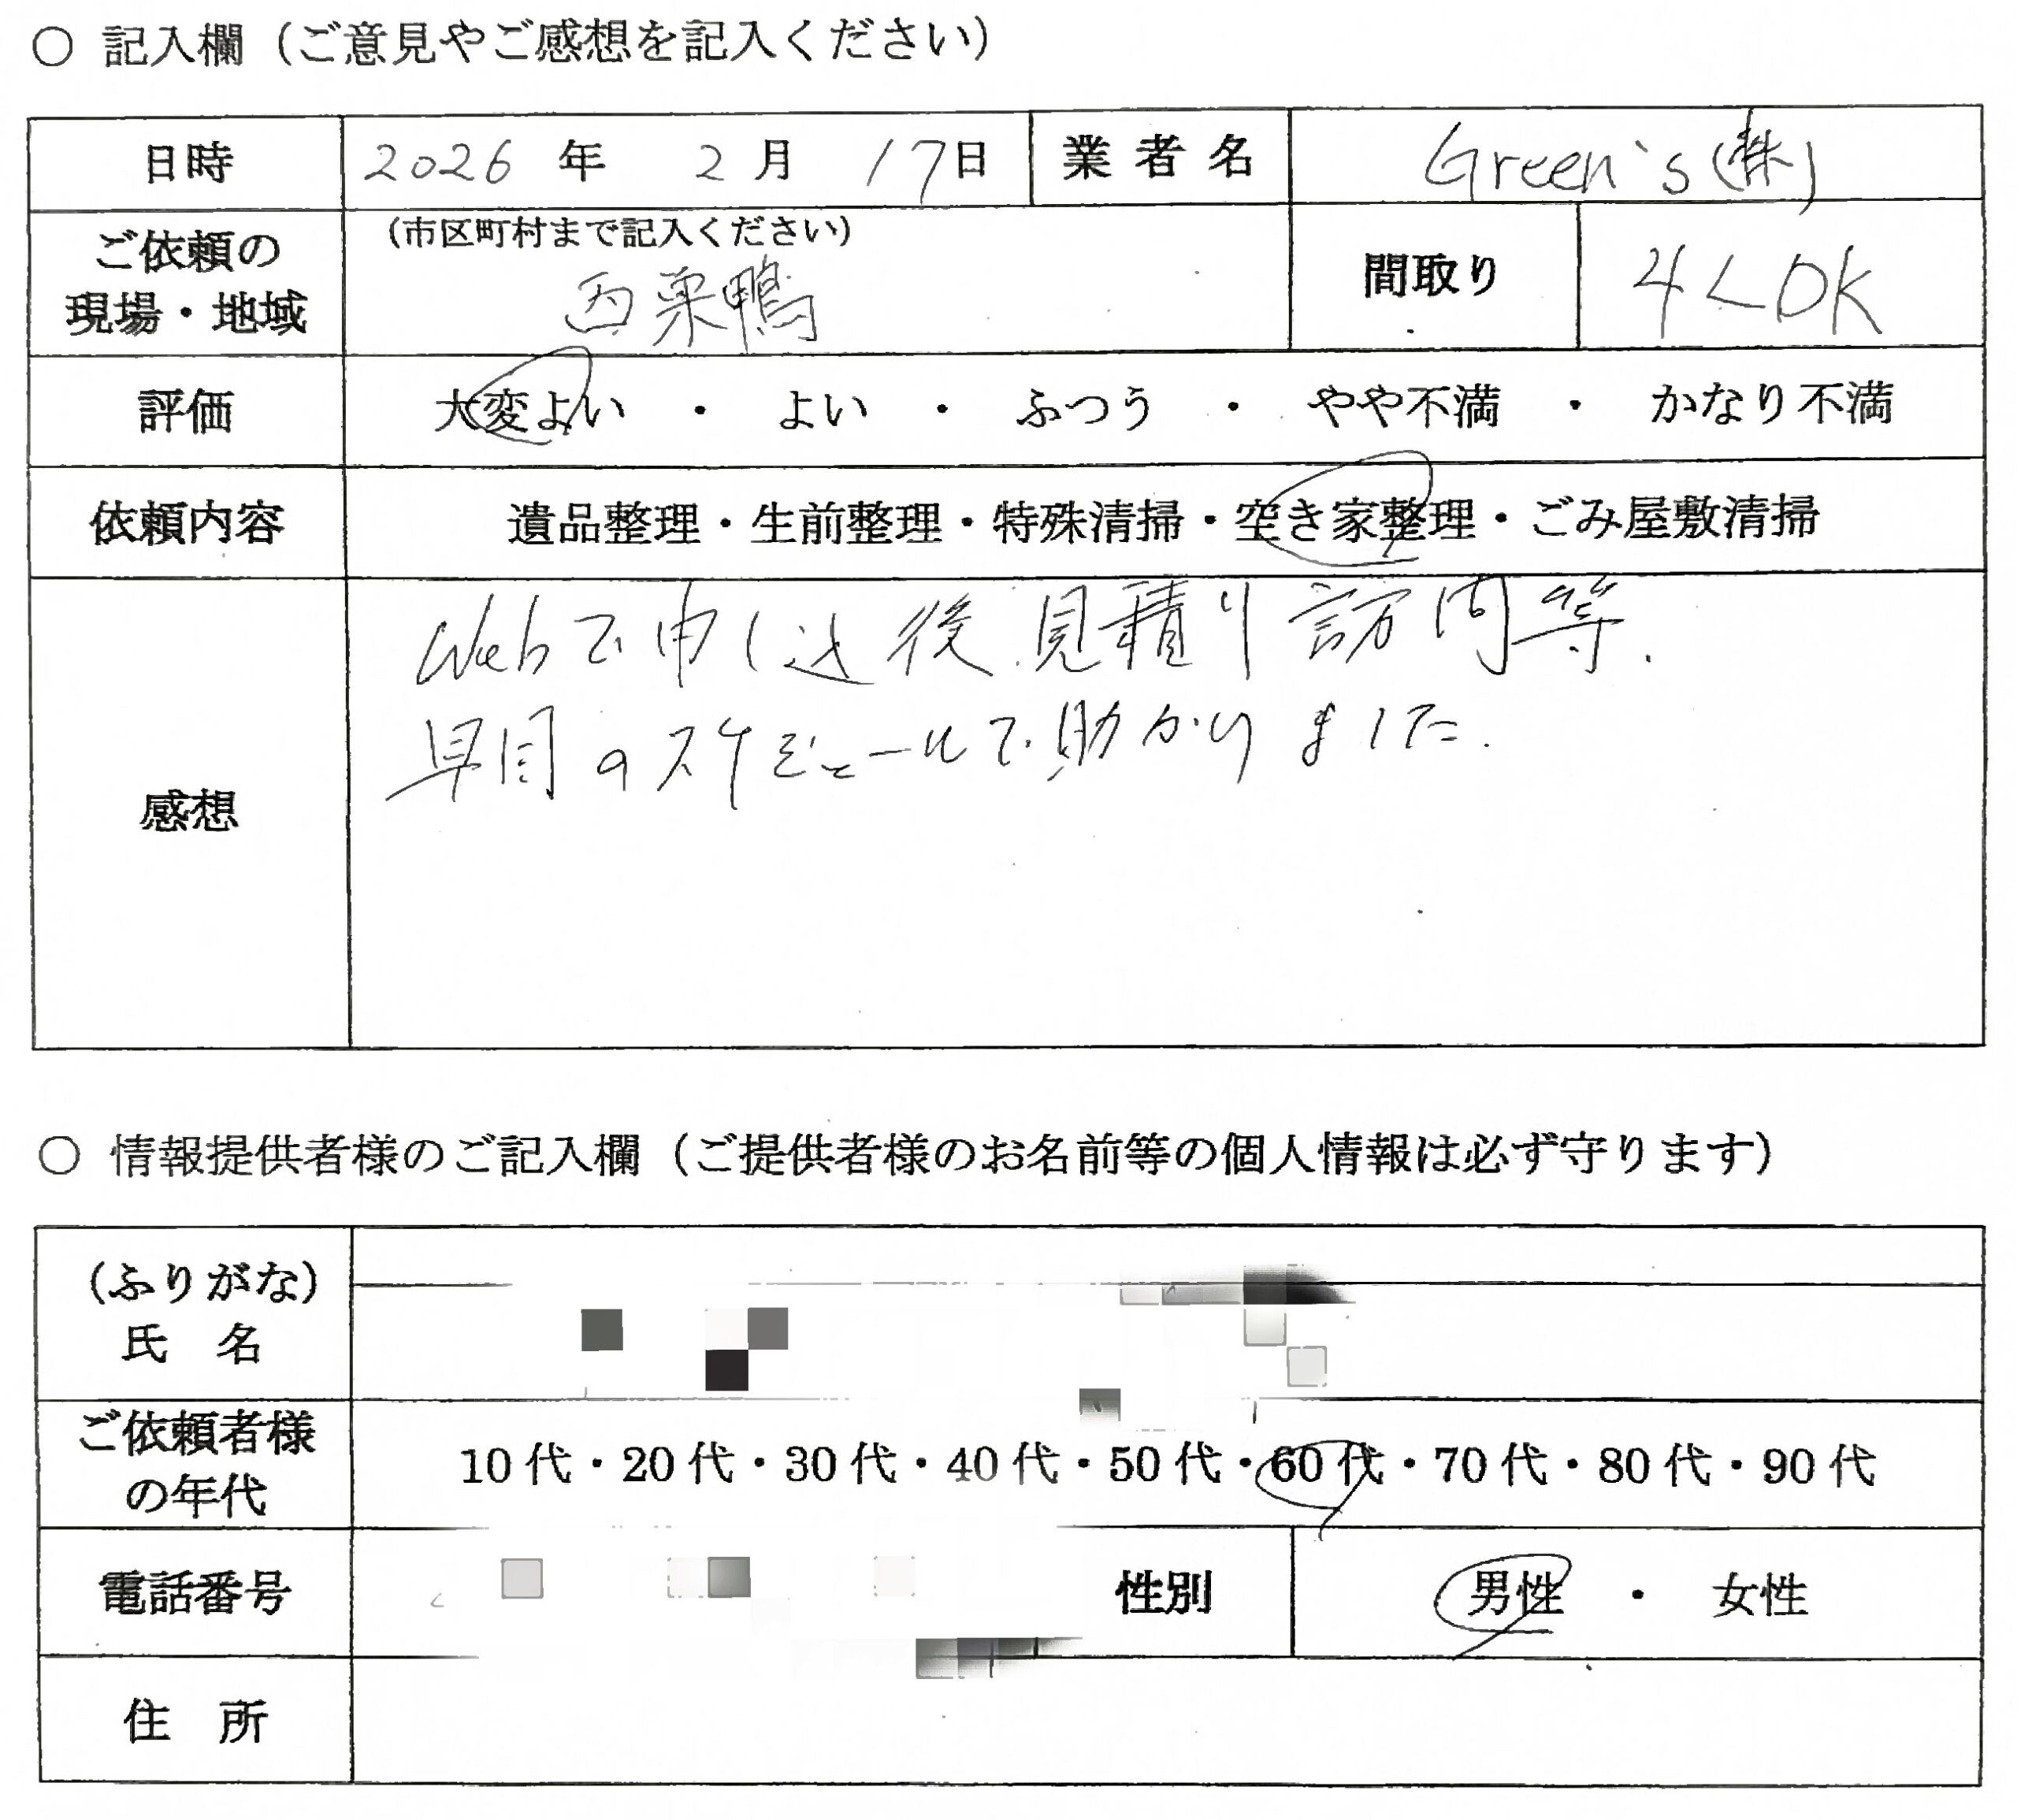 ○ 記入欄（ご意見やご感想を記入ください）
日時 2026 年 2 月 17日 業者名 Green's(株)
ご依頼の現場・地域 (市区町村まで記入ください) 西巣鴨 間取り 4LDK
評価 大変よい ・ よい ・ ふつう ・ やや不満 ・ かなり不満
依頼内容 遺品整理・生前整理・特殊清掃・空き家整理・ごみ屋敷清掃
感想
Webで申し込後、見積り訪問等、
早目のスケジュールで助かりました。
○ 情報提供者様のご記入欄（ご提供者様のお名前等の個人情報は必ず守ります）
（ふりがな）
氏 名
ご依頼者様の年代 10代・20代・30代・40代・50代・60代・70代・80代・90代
電話番号 性別 男性 ・ 女性
住 所